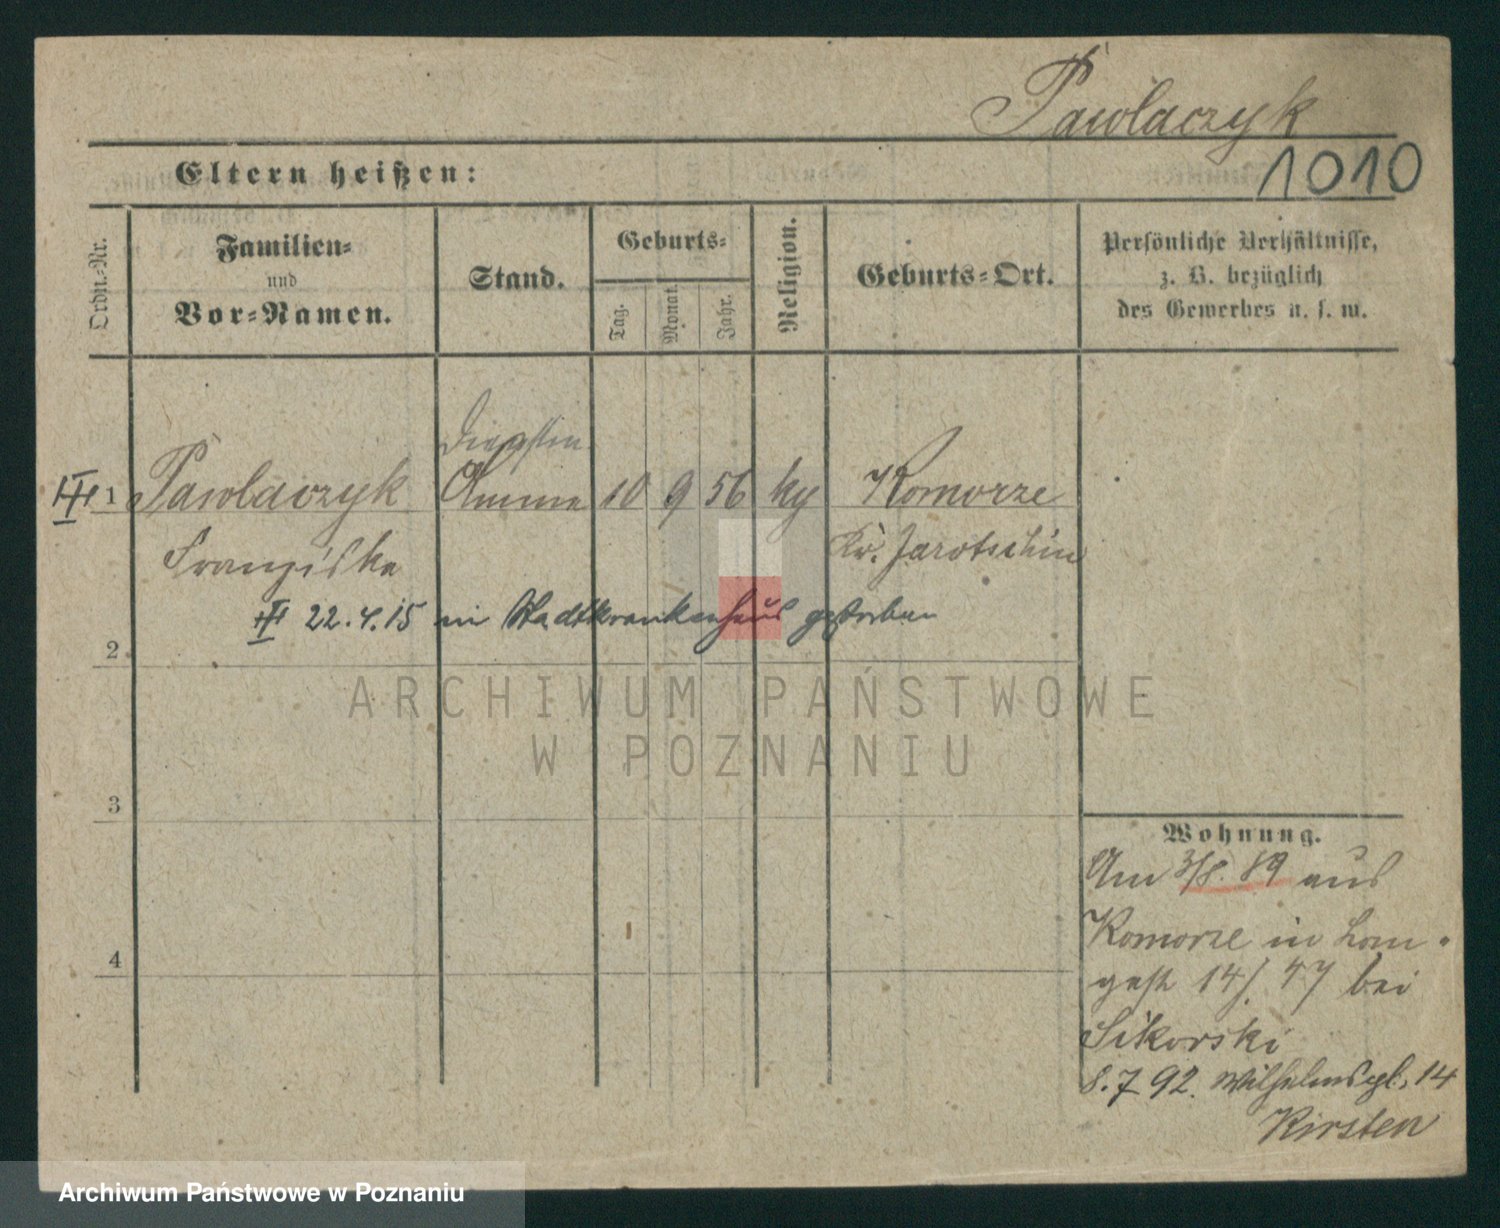 Pawlaczyk
1010
Eltern heißen:
Ordn.-Nr.
Familien-
und
Vor-Namen.
Stand.
Geburts-
Tag.
Monat.
Jahr.
Religion.
Geburts-Ort.
Persönliche Verhältnisse,
z. B. bezüglich
des Gewerbes u. s. w.
1 Pawlaczyk Amme 10 9 56 ky Komorze
Franziska Kr. Jarotschin
22.4.15 im Stadtkrankenhaus gestorben
2
3
4
Wohnung.
Am 3/8. 89 aus
Komorze in
14/ bei
Sikorski
8.7 92. Wilhelmspl. 14
Kirsten
ARCHIWUM PAŃSTWOWE
W POZNANIU
Archiwum Państwowe w Poznaniu